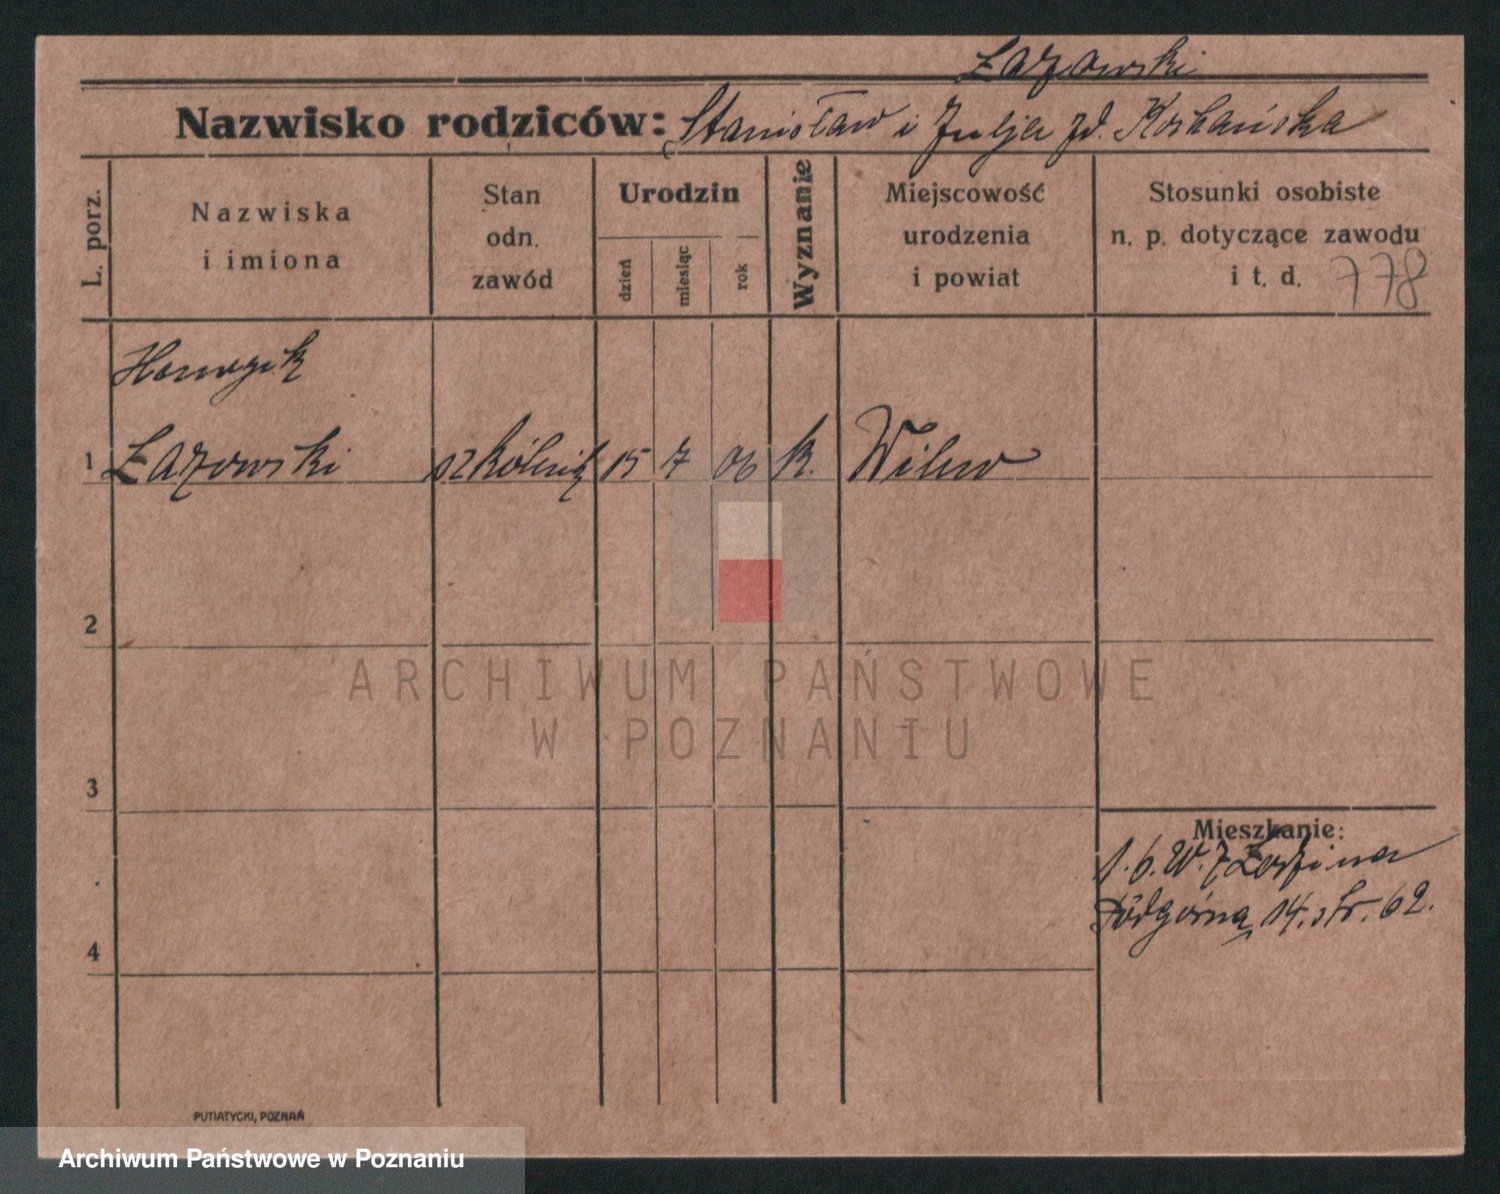 Łazowski
Nazwisko rodziców: Stanisław i Julja zd. Kochańska
L. porz.
Nazwiska
i imiona
Stan
odn.
zawód
Urodzin
dzień
miesiąc
rok
Wyznanie
Miejscowość
urodzenia
i powiat
Stosunki osobiste
n. p. dotyczące zawodu
i t. d. 778
Henryk
1 Łazowski szkólnik 15 7 06 k. Wilno
2
ARCHIWUM PAŃSTWOWE
W POZNANIU
3
Mieszkanie:
1. 6. W. z
Podgórna 14. str. 62.
4
PUTIATYCKI, POZNAŃ
Archiwum Państwowe w Poznaniu